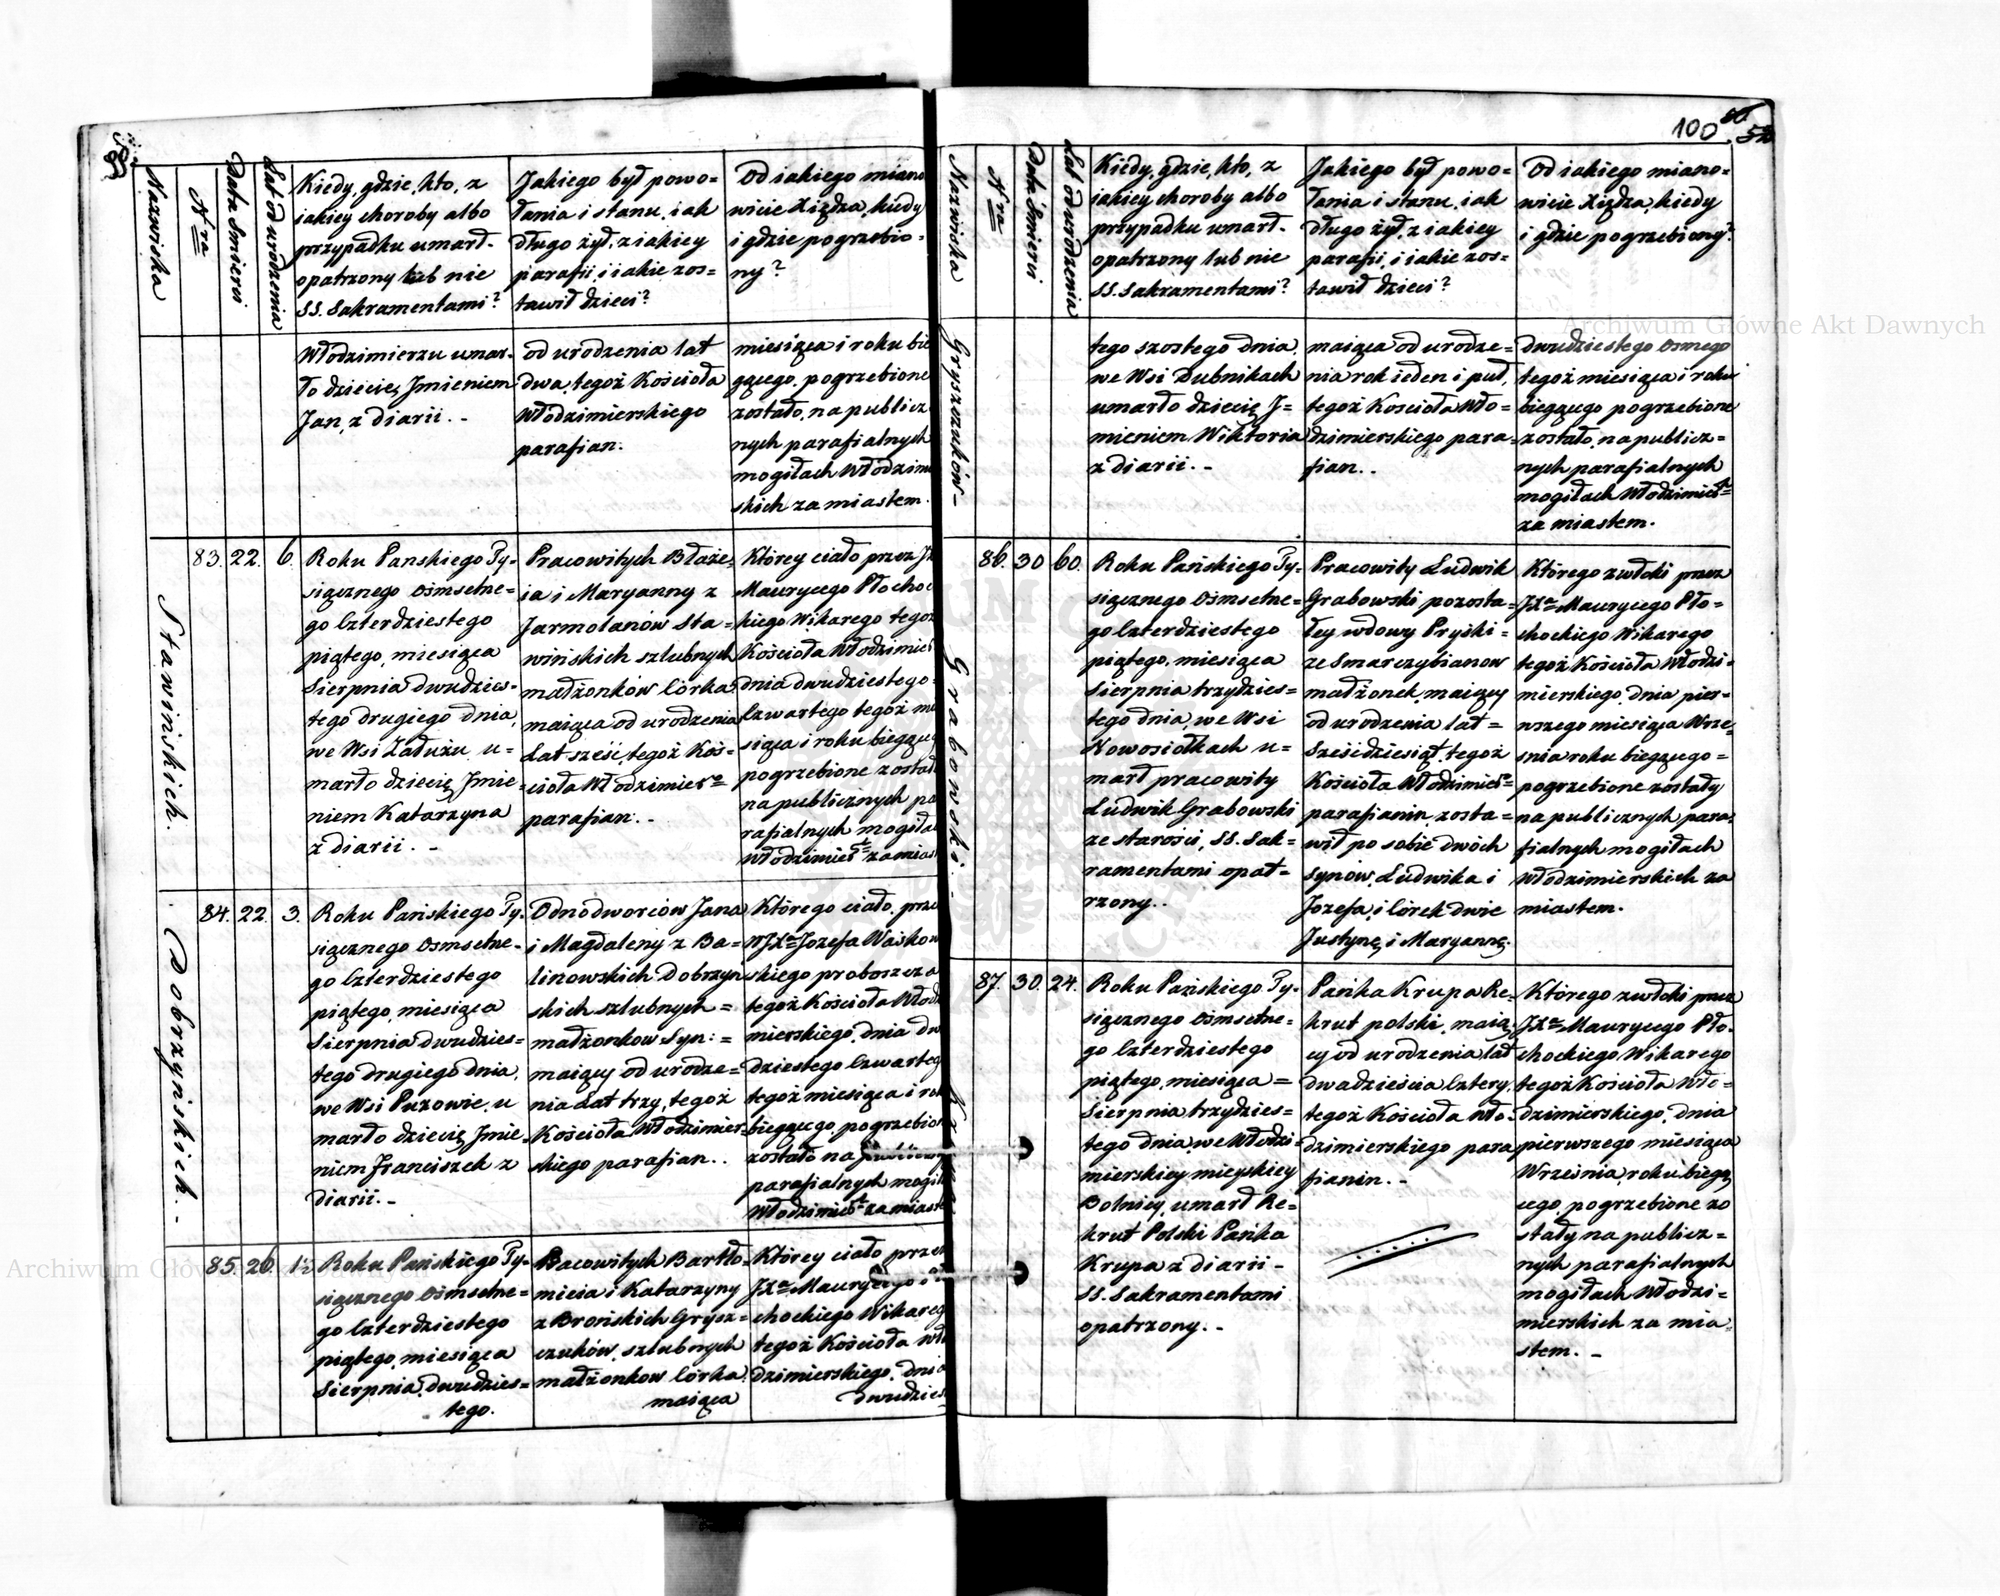 99.
Nazwiska
Nra
Data Smierci
Lat od urodzenia
Kiedy, gdzie, kto, z
iakiey choroby albo
przypadku umarł.
opatrzony lub nie
SS. Sakramentami?
Jakiego był powo=
łania i stanu, iak
długo żył, z iakiey
parafii, i iakie zos=
tawił dzieci?
Od iakiego miano
wicie Xiędza, kiedy
i gdzie pogrzebio=
ny?
Włodzimierzu umar=
ło dziecię Jmieniem
Jan, z diarii. -
od urodzenia lat
dwa, tegoż Kościoła
Włodzimierskiego
parafian.
miesiąca i roku bie
gącego, pogrzebione
zostało, na publicz
nych parafialnych
mogiłach Włodzimi
skich za miastem.
Stawińskich.
83. 22. 6.
Roku Panskiego Ty=
siącznego Osmsetne=
go Czterdziestego
piątego, miesiąca
Sierpnia dwudzies=
tego drugiego dnia,
we Wsi Załużu u=
marło dziecię Jmie=
niem Katarzyna
z diarii. -
Pracowitych Błaże=
ia i Maryanny z
Jarmolanów Sta=
wińskich szlubnych
małżonków Córka
maiąca od urodzenia
Lat sześć, tegoż Koś=
cioła Włodzimier
parafian. -
Którey ciało przez JX
Maurycego Płocho
kiego Wikarego tegoż
Kościoła Włodzimier
dnia dwudziestego=
Czwartego tegoż mie
siąca i roku biegące
pogrzebione zostało
na publicznych pa
rafialnych mogiłach
Włodzimier za miast
Dobrzyńskich. -
84. 22. 3.
Roku Pańskiego Ty=
siącznego Osmsetne=
go Czterdziestego
piątego, miesiąca
Sierpnia dwudzies=
tego drugiego dnia,
we Wsi Puzowie, u
marło dziecię Jmie=
niem Franciszek z
diarii. -
Odnodworców Jana
i Magdaleny z Ba=
linowskich Dobrzyn
skich szlubnych =
małżonkow Syn: =
maiący od urodze=
nia Lat trzy, tegoż
Kościoła Włodzimier=
skiego parafian..
Którego ciało, prze
WJX Jozefa Waskow
skiego proboszcza
tegoż Kościoła Włod
mierskiego, dnia dw
dziestego Czwarteg
tegoż miesiąca i rok
biegącego, pogrzebion
zostało na publiczn
parafialnych mogiła
Włodzimier za miaste
85. 26. 1½
Roku Pańskiego Ty=
siącznego Osmsetne=
go Czterdziestego
piątego, miesiąca
Sierpnia, dwudzies=
tego.
Pracowitych Bartło=
mieia i Katarzyny
z Brońskich Grysz=
czuków, szlubnych
małżonkow Córka,
maiąca
Którey ciało przez
JX Maurycego
chockiego Wikareg
tegoż Kościoła Wło
dzimierskiego, dnia
dwudzies
100
52
Nazwiska
Nra
Data Smierci
Lat od urodzenia
Kiedy, gdzie, kto, z
iakiey choroby albo
przypadku umarł.
opatrzony lub nie
SS. Sakramentami?
Jakiego był powo=
łania i stanu, iak
długo żył, z iakiey
parafii, i iakie zos=
tawił dzieci?
Od iakiego miano=
wicie Xiędza, kiedy
i gdzie pogrzebiony?
Gryszczuków -
tego szostego dnia,
we Wsi Dubnikach
umarło dziecię J=
mieniem Wiktoria
z diarii. -
maiąca od urodze=
nia rok ieden i puł,
tegoż Kościoła Wło=
dzimierskiego para=
fian. -
dwudziestego Osmego
tegoż miesiąca i roku
biegącego pogrzebione
zostało, na publicz=
nych parafialnych
mogiłach Włodzimier=
za miastem.
Grabowski -
86. 30 60.
Roku Pańskiego Ty=
siącznego Osmsetne=
go Czterdziestego
piątego, miesiąca
Sierpnia trzydzies=
tego dnia, we Wsi
Nowosiołkach u=
marł pracowity
Ludwik Grabowski
ze starości, SS. Sak=
ramentami opat=
rzony..
Pracowity Ludwik
Grabowski pozosta=
łey wdowy Pryśki=
ze Smarczybianow
małżonek, maiący
od urodzenia lat =
Sześćdziesiąt, tegoż
Kościoła Włodzimier=
parafianin, zosta=
wił po sobie dwóch
synów, Ludwika i
Jozefa, i Córek dwie
Justynę i Maryannę.
Którego zwłoki przez
JX Maurycego Pło=
chockiego Wikarego
tegoż Kościoła Włodzi=
mierskiego, dnia pier=
wszego miesiąca Wrze=
snia roku biegącego=
pogrzebione zostały
na publicznych para=
fialnych mogiłach
Włodzimierskich za
miastem.
87. 30. 24.
Roku Pańskiego Ty=
siącznego Osmsetne=
go Czterdziestego
piątego, miesiąca =
Sierpnia trzydzies=
tego dnia, we Włodzi=
mierskiey mieyskiey
Bolnicy, umarł Re=
krut Polski Pańka
Krupa z diarii -
SS. Sakramentami
opatrzony. -
Pańka Krupa Re=
krut polski, maią=
cy od urodzenia lat
dwadzieścia Cztery,
tegoż Kościoła Wło=
dzimierskiego para
fianin. -
Którego zwłoki przez
JX Maurycego Pło=
chockiego, Wikarego
tegoż Kościoła Wło=
dzimierskiego, dnia
pierwszego miesiąca
Września, roku biegą
cego, pogrzebione zo
stały na publicz=
nych parafialnych
mogiłach Włodzi=
mierskich za mia=
stem. -
Archiwum Główne Akt Dawnych